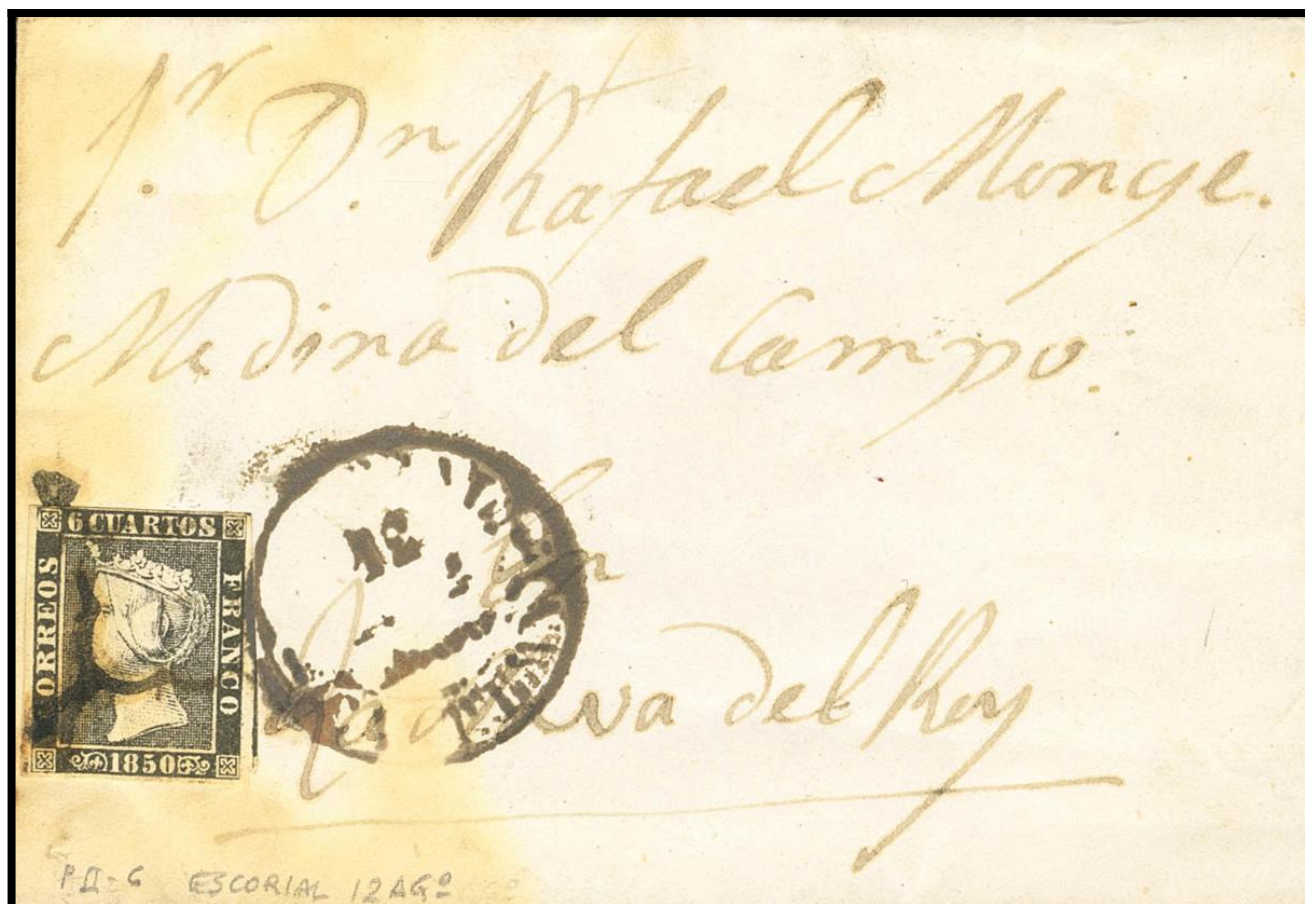 Sr. Dn. Rafael Monge.
Medina del Campo.
en
la Nava del Rey
6 CUARTOS
CORREOS
FRANCO
1850
12
PII-6 ESCORIAL 12 AGº